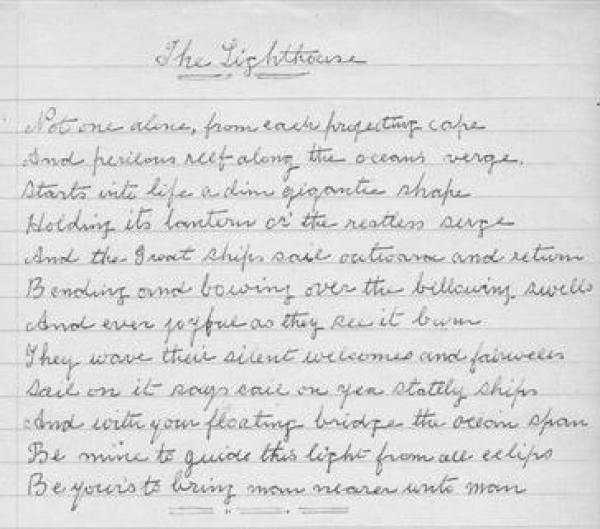 The Lighthouse
Not one alone, from each projecting cape
And perilous reef along the oceans verge,
Starts into life a dim gigantic shape
Holding its lantern or the restless serge
And the Great ships sail outward and return
Bending and bowing over the billowing swells
And ever joyful as they see it burn
They wave their silent welcomes and fairwells
Sail on it says sail on yea stately ships
And with your floating bridge the ocean span
Be mine to guide this light from all eclips
Be yours to bring man nearer unto man